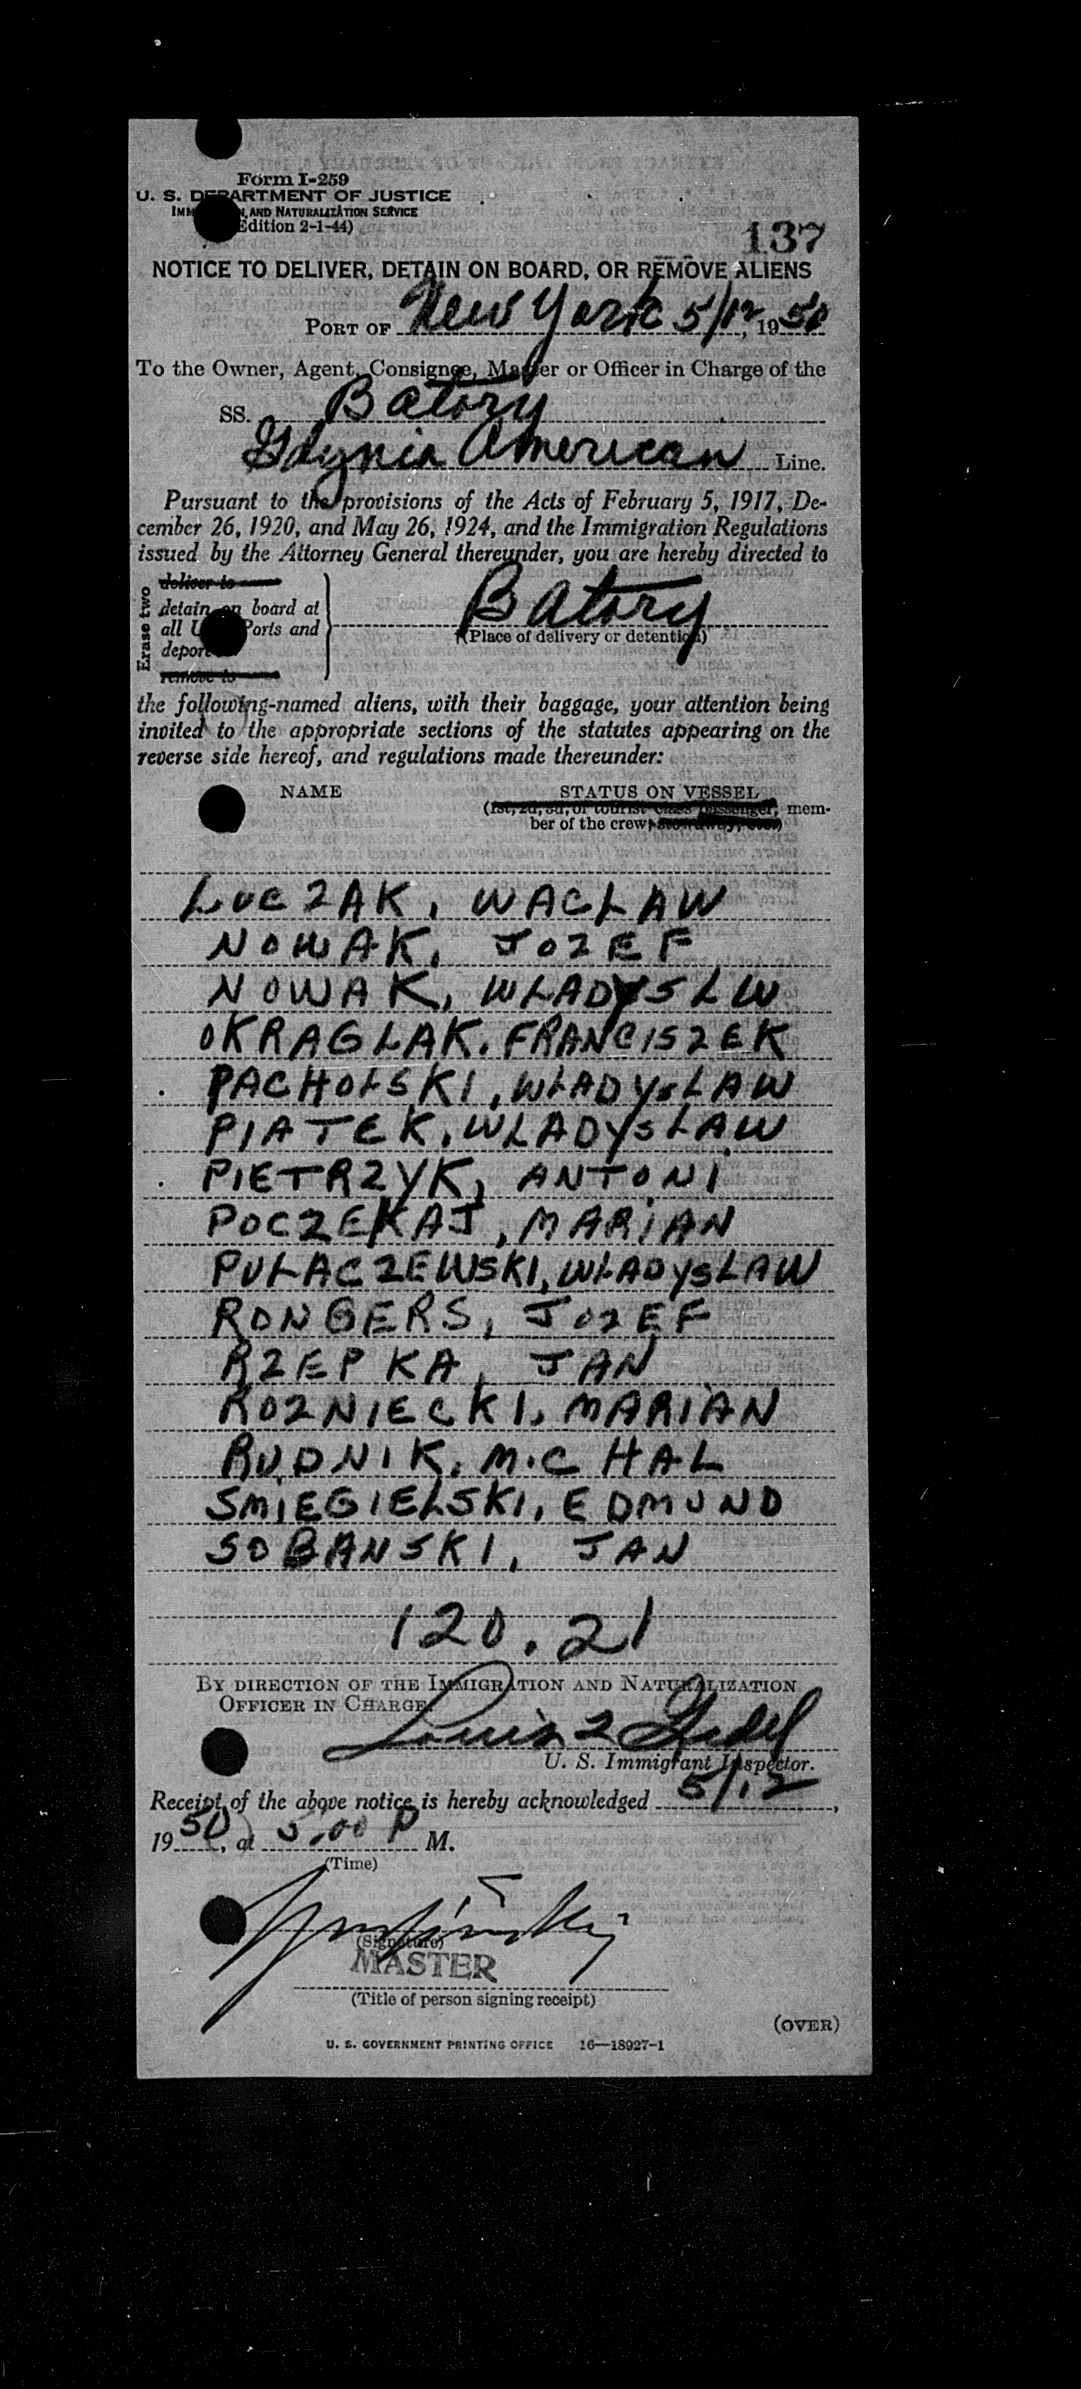 Form I-259
U. S. DEPARTMENT OF JUSTICE
IMM N AND NATURALIZATION SERVICE
Edition 2-1-44)
137
NOTICE TO DELIVER, DETAIN ON BOARD, OR REMOVE ALIENS
PORT OF New York 5/12, 1950
To the Owner, Agent, Consignee, Master or Officer in Charge of the
SS. Batory
Gdynia American Line.
Pursuant to the provisions of the Acts of February 5, 1917, De-
cember 26, 1920, and May 26, 1924, and the Immigration Regulations
issued by the Attorney General thereunder, you are hereby directed to
Erase two
deliver to
detain on board at
all U Ports and
deport
remove to
Batory
(Place of delivery or detention)
the following-named aliens, with their baggage, your attention being
invited to the appropriate sections of the statutes appearing on the
reverse side hereof, and regulations made thereunder:
NAME STATUS ON VESSEL
(1st, 2d, 3d, or tourist class passenger, mem-
ber of the crew, stowaway, etc.)
LUCZAK, WACŁAW
NOWAK, JOZEF
NOWAK, WŁADYSLW
OKRAGLAK, FRANCISZEK
PACHOŁSKI, WŁADYSŁAW
PIATEK, WŁADYSŁAW
PIETRZYK, ANTONI
POCZEKAJ, MARIAN
PUŁACZEWSKI, WŁADYSŁAW
RONGERS, JOZEF
RZEPKA, JAN
ROZNIECKI, MARIAN
RUDNIK, MICHAL
SMIEGIELSKI, EDMUND
SOBANSKI, JAN
120.21
BY DIRECTION OF THE IMMIGRATION AND NATURALIZATION
OFFICER IN CHARGE
Louis
U. S. Immigrant Inspector.
Receipt of the above notice is hereby acknowledged 5/12,
1950, at 5.00 P M.
(Time)
(Signature)
MASTER
(Title of person signing receipt)
(OVER)
U. S. GOVERNMENT PRINTING OFFICE 16—18927-1